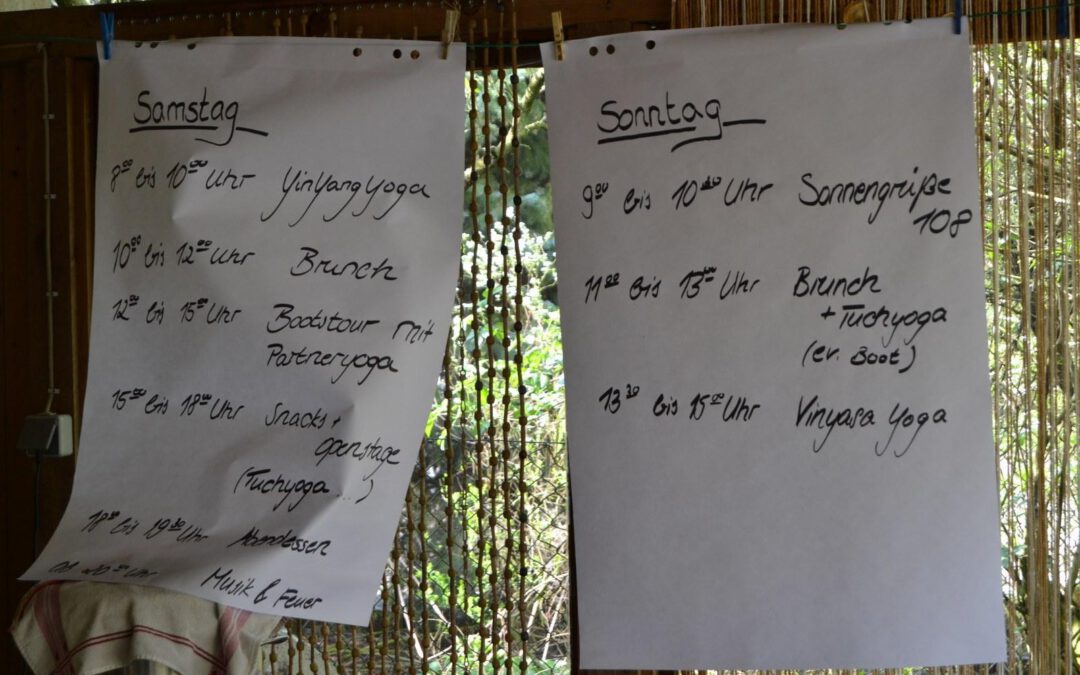 Samstag
8⁰⁰ bis 10⁰⁰ Uhr YinYangYoga
10⁰⁰ bis 12⁰⁰ Uhr Brunch
12⁰⁰ bis 15⁰⁰ Uhr Bootstour mit
Partneryoga
15⁰⁰ bis 18⁰⁰ Uhr Snacks +
openstage
(Tuchyoga ...)
bis 19³⁰ Uhr Abendessen
Uhr Musik & Feuer
Sonntag
9⁰⁰ bis 10 Uhr Sonnengrüße
108
11⁰⁰ bis 13⁰⁰ Uhr Brunch
+ Tuchyoga
(ev. Boot)
13³⁰ bis 15⁰⁰ Uhr Vinyasa Yoga